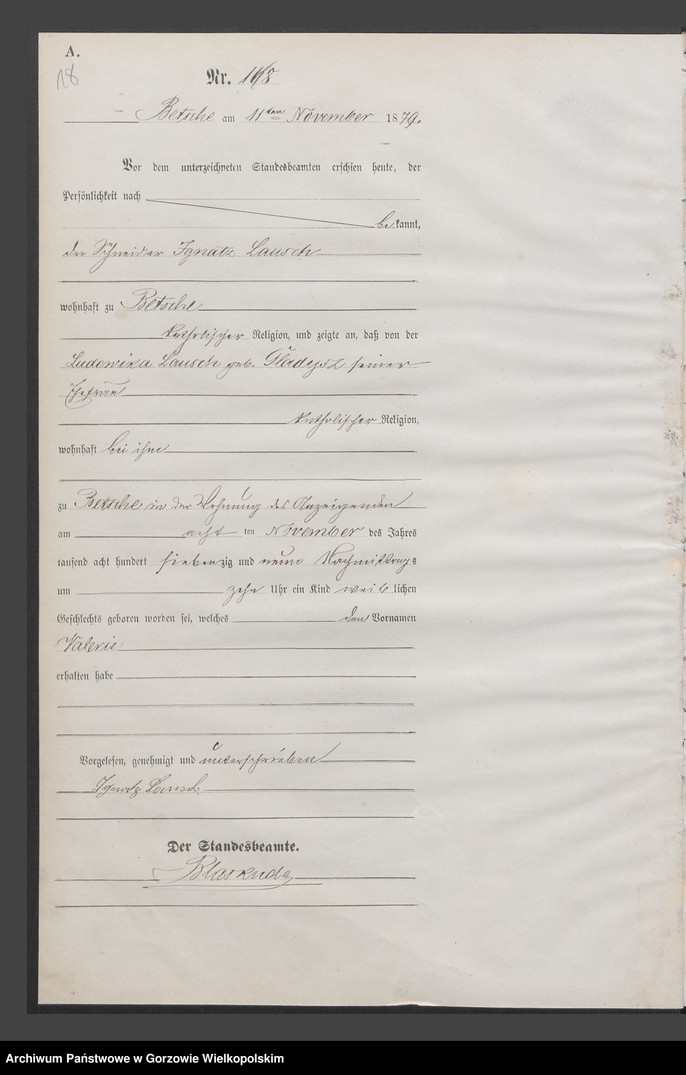 A.
18
Nr. 168
Betsche am 11ten November 1879.
Vor dem unterzeichneten Standesbeamten erschien heute, der
Persönlichkeit nach
bekannt,
der Schneider Ignatz Lausch
wohnhaft zu Betsche
katholischer Religion, und zeigte an, daß von der
Ludowika Lausch geb. seiner
Ehefrau
katholischer Religion,
wohnhaft bei ihm
zu Betsche in der Wohnung des Anzeigenden
am acht ten November des Jahres
tausend acht hundert siebenzig und neun Nachmittags
um zehn Uhr ein Kind weiblichen
Geschlechts geboren worden sei, welches den Vornamen
Valerie
erhalten habe
Vorgelesen, genehmigt und unterschrieben
Ignatz Lausch
Der Standesbeamte.
Archiwum Państwowe w Gorzowie Wielkopolskim